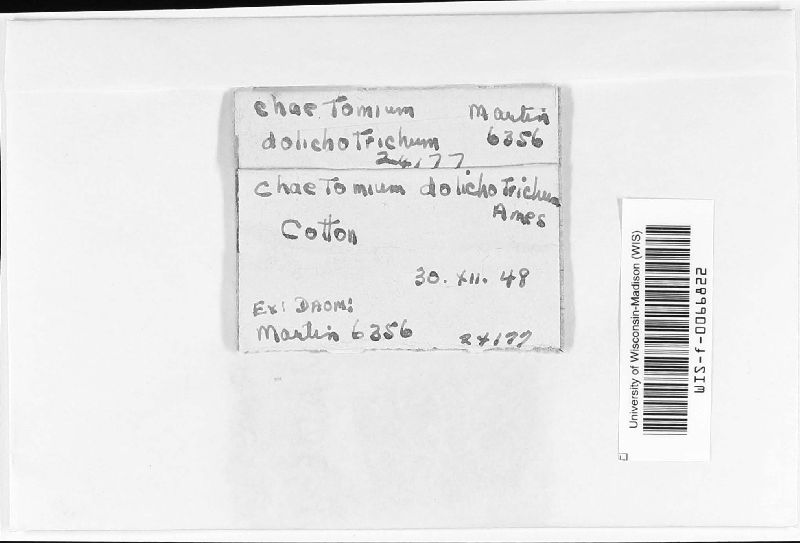 chaetomium Martin
dolichotrichum 6356
24177
chaetomium dolichotrichum
Ames
Cotton
30. XII. 48
Ex: DAOM:
Martin 6356 24177
University of Wisconsin-Madison (WIS)
WIS-f-0066822